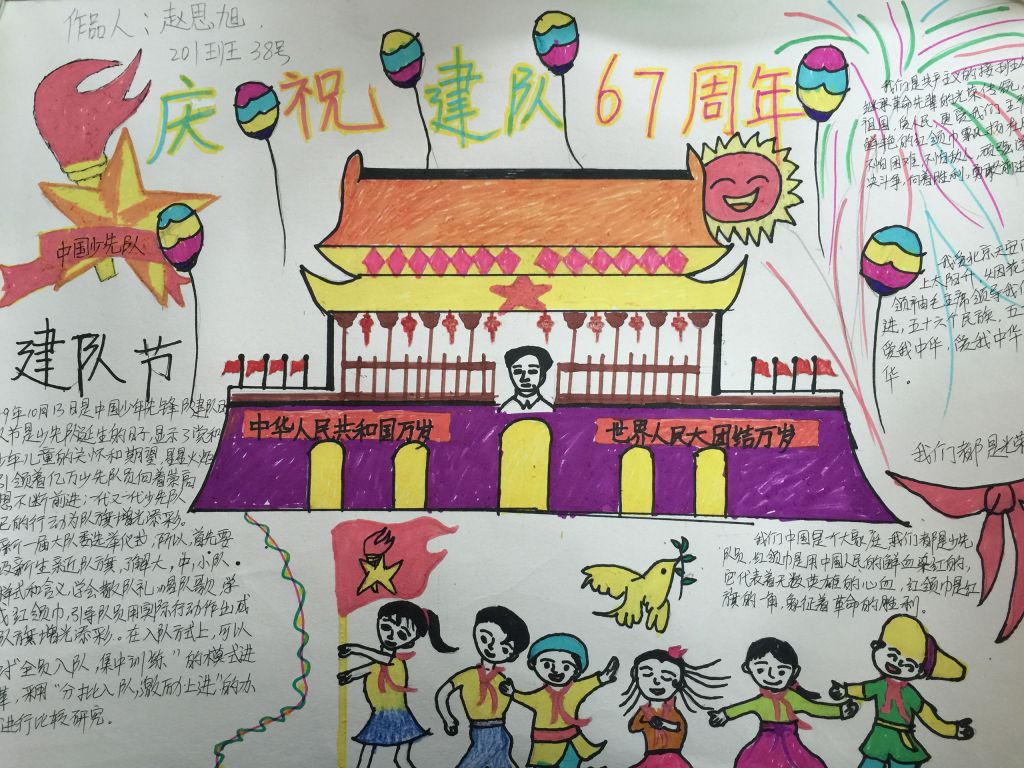 作品人：赵思旭
201班 38号
庆祝建队67周年
中国少先队
建队节
9年10月13日是中国少年先锋队建队
节是少先队诞生的日子,显示了党和
少年儿童的关怀和期望.星星火炬
引领着亿万少先队员向着崇高
想不断前进;一代又一代少先队
己的行动为队旗增光添彩。
新一届大队委选举仪式,所以,首先要
新生亲近队旗,了解大,中,小队.
样式和含义,学会敬队礼,唱队歌,学
戴红领巾,引导队员用实际行动作出成
队旗增光添彩。在入队方式上,可以
对"全员入队,集中训练"的模式进
革,采用"分批入队,激励上进"的办
进行比较研究。
中华人民共和国万岁
世界人民大团结万岁
我们是共产主义的接班人
继承革命先辈的光荣传统,
祖国,爱人民,
鲜艳的红领巾飘扬在
不怕困难,不怕敌人,顽强
决斗争,向着胜利,勇敢前进
我爱北京天安门
上太阳升,
领袖毛主席,领导我们
进,五十六个民族,五
爱我中华,爱我中华
华。
我们都是
我们中国是个大家庭,我们都是少先
队员,红领巾是用中国人民的鲜血染红的,
它代表着无数英雄的心血,红领巾是红
旗的一角,象征着革命的胜利。